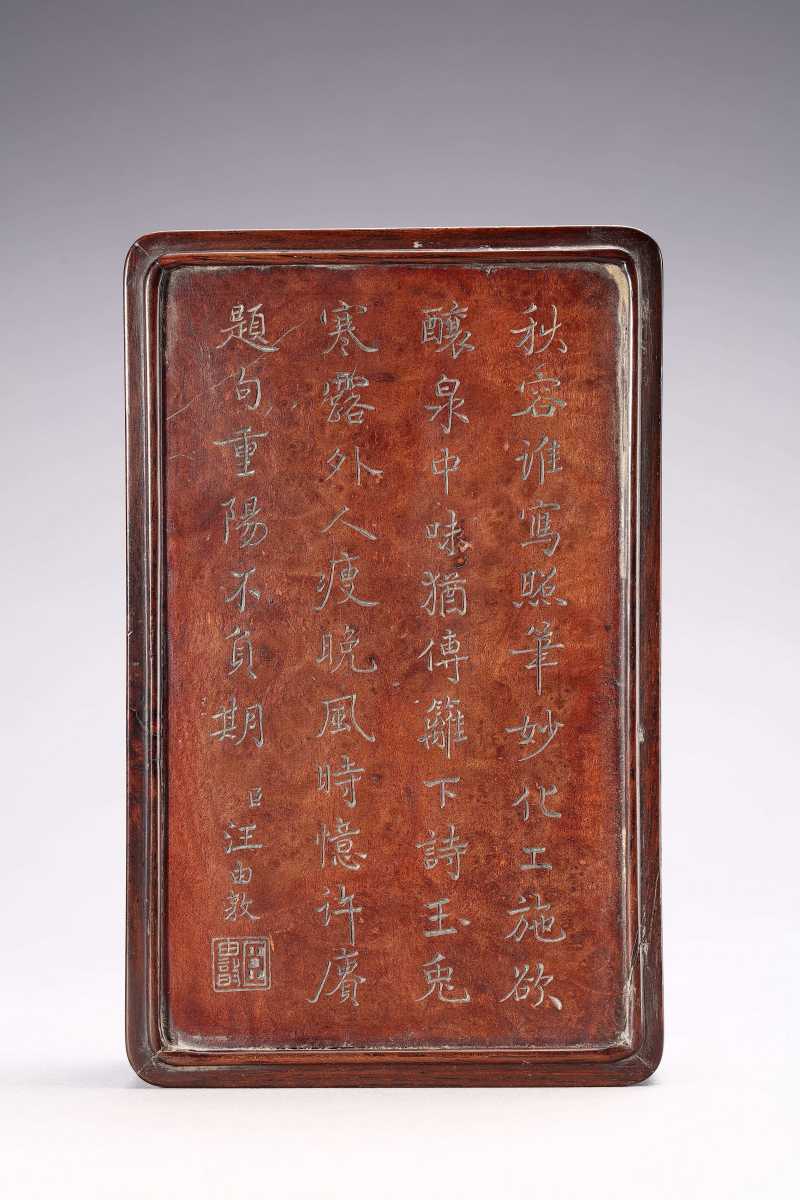 秋容誰寫照筆妙化工施欲
釀泉中味猶傳籬下詩玉兔
寒露外人瘦晚風時憶許賡
題句重陽不負期
臣汪由敦